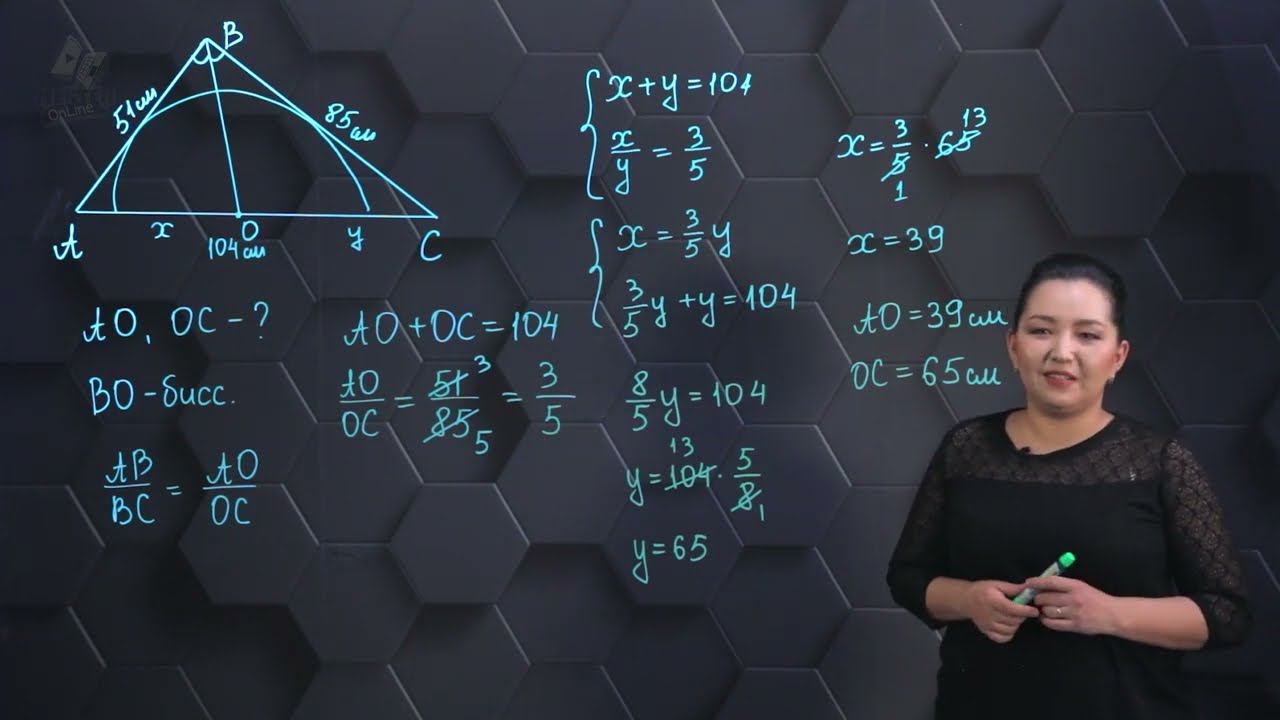 OnLine
B
51 см
85 см
A
x
O
y
C
104 см
AO, OC - ?
BO - бисс.
AB/BC = AO/OC
AO + OC = 104
AO/OC = 51/85 = 3/5
3
5
x + y = 104
x/y = 3/5
x = 3/5 y
3/5 y + y = 104
8/5 y = 104
13
y = 104 · 5/8
1
y = 65
13
x = 3/5 · 65
1
x = 39
AO = 39 см
OC = 65 см